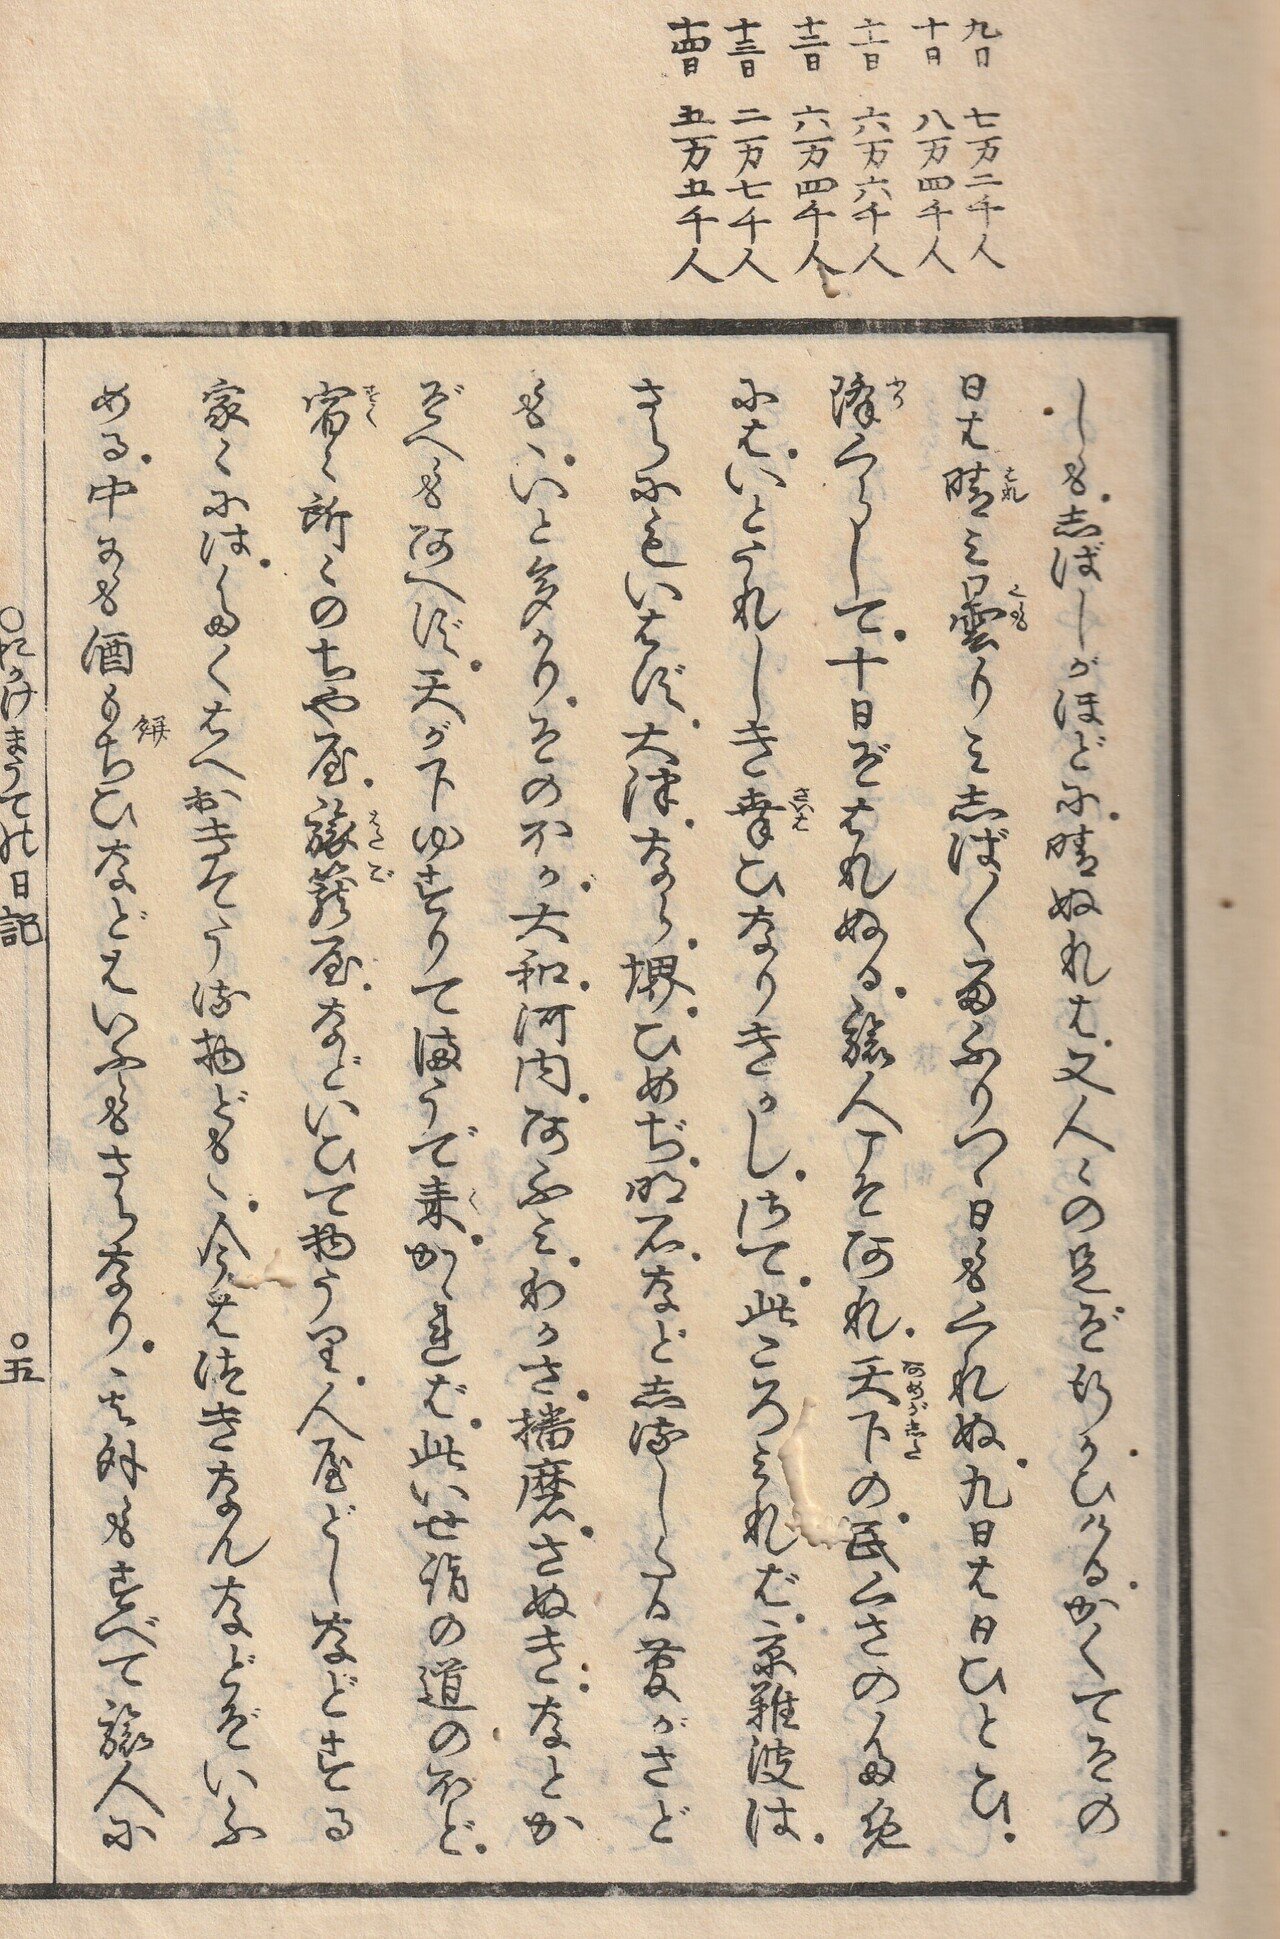 九日 七万二千人
十日 八万四千人
十一日 六万六千人
十二日 六万四千人
十三日 二万七千人
十四日 五万五千人
しも志ばしがほどに晴ぬれは又人〻の足ぞ行かひけるかくてその
日は晴み曇りみ志ば〱雨ふりつゝ日もくれぬ九日は日ひとひ
降くらして十日ぞはれぬる旅人こそ阿れ天下の民くさのため
にはいとうれしき幸ひなりきかしさて此ころみれば京難波は
さらにもいはず大津なら堺ひめぢ明石など志るしたる菅がさど
もゝいと多かりそのほか大和河内阿ふみわかさ播磨さぬきなとか
ぞへも阿へず天が下ゆすりてまうで来かゝれば此いせ詣の道のほど
宿〻所〻のちや屋旅籠屋などいひて物うり人屋どしなどする
家〻にはたくはへおきたる物ども今はつきなんなどぞいふ
める中にも酒もちひなどはいふもさらなり其外もすべて旅人に
○おかけまうての日記
○五